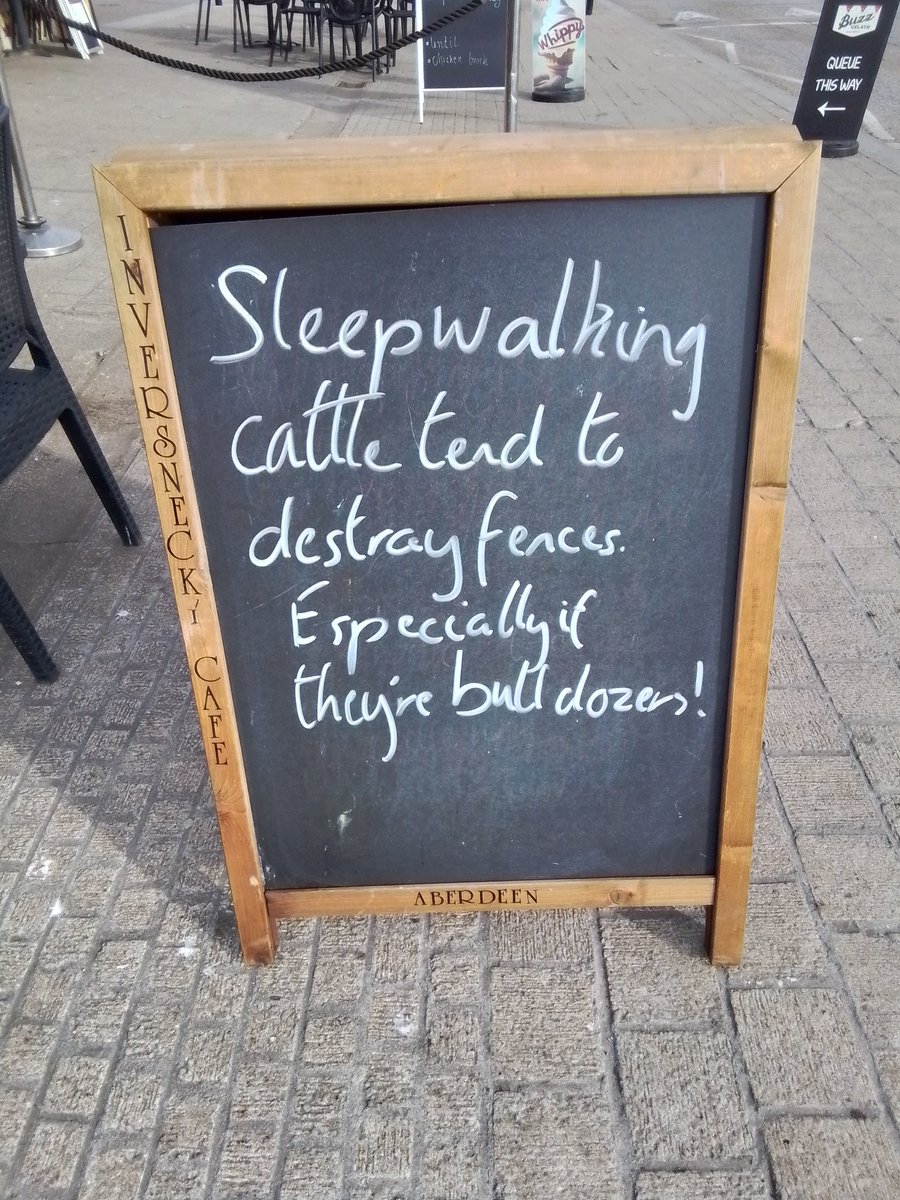 • until
• Chicken
Whippy
Buzz
GELATO
QUEUE
THIS WAY
INVERSNECKY CAFE
Sleepwalking
cattle tend to
destray fences.
Especially if
they're bulldozers!
ABERDEEN